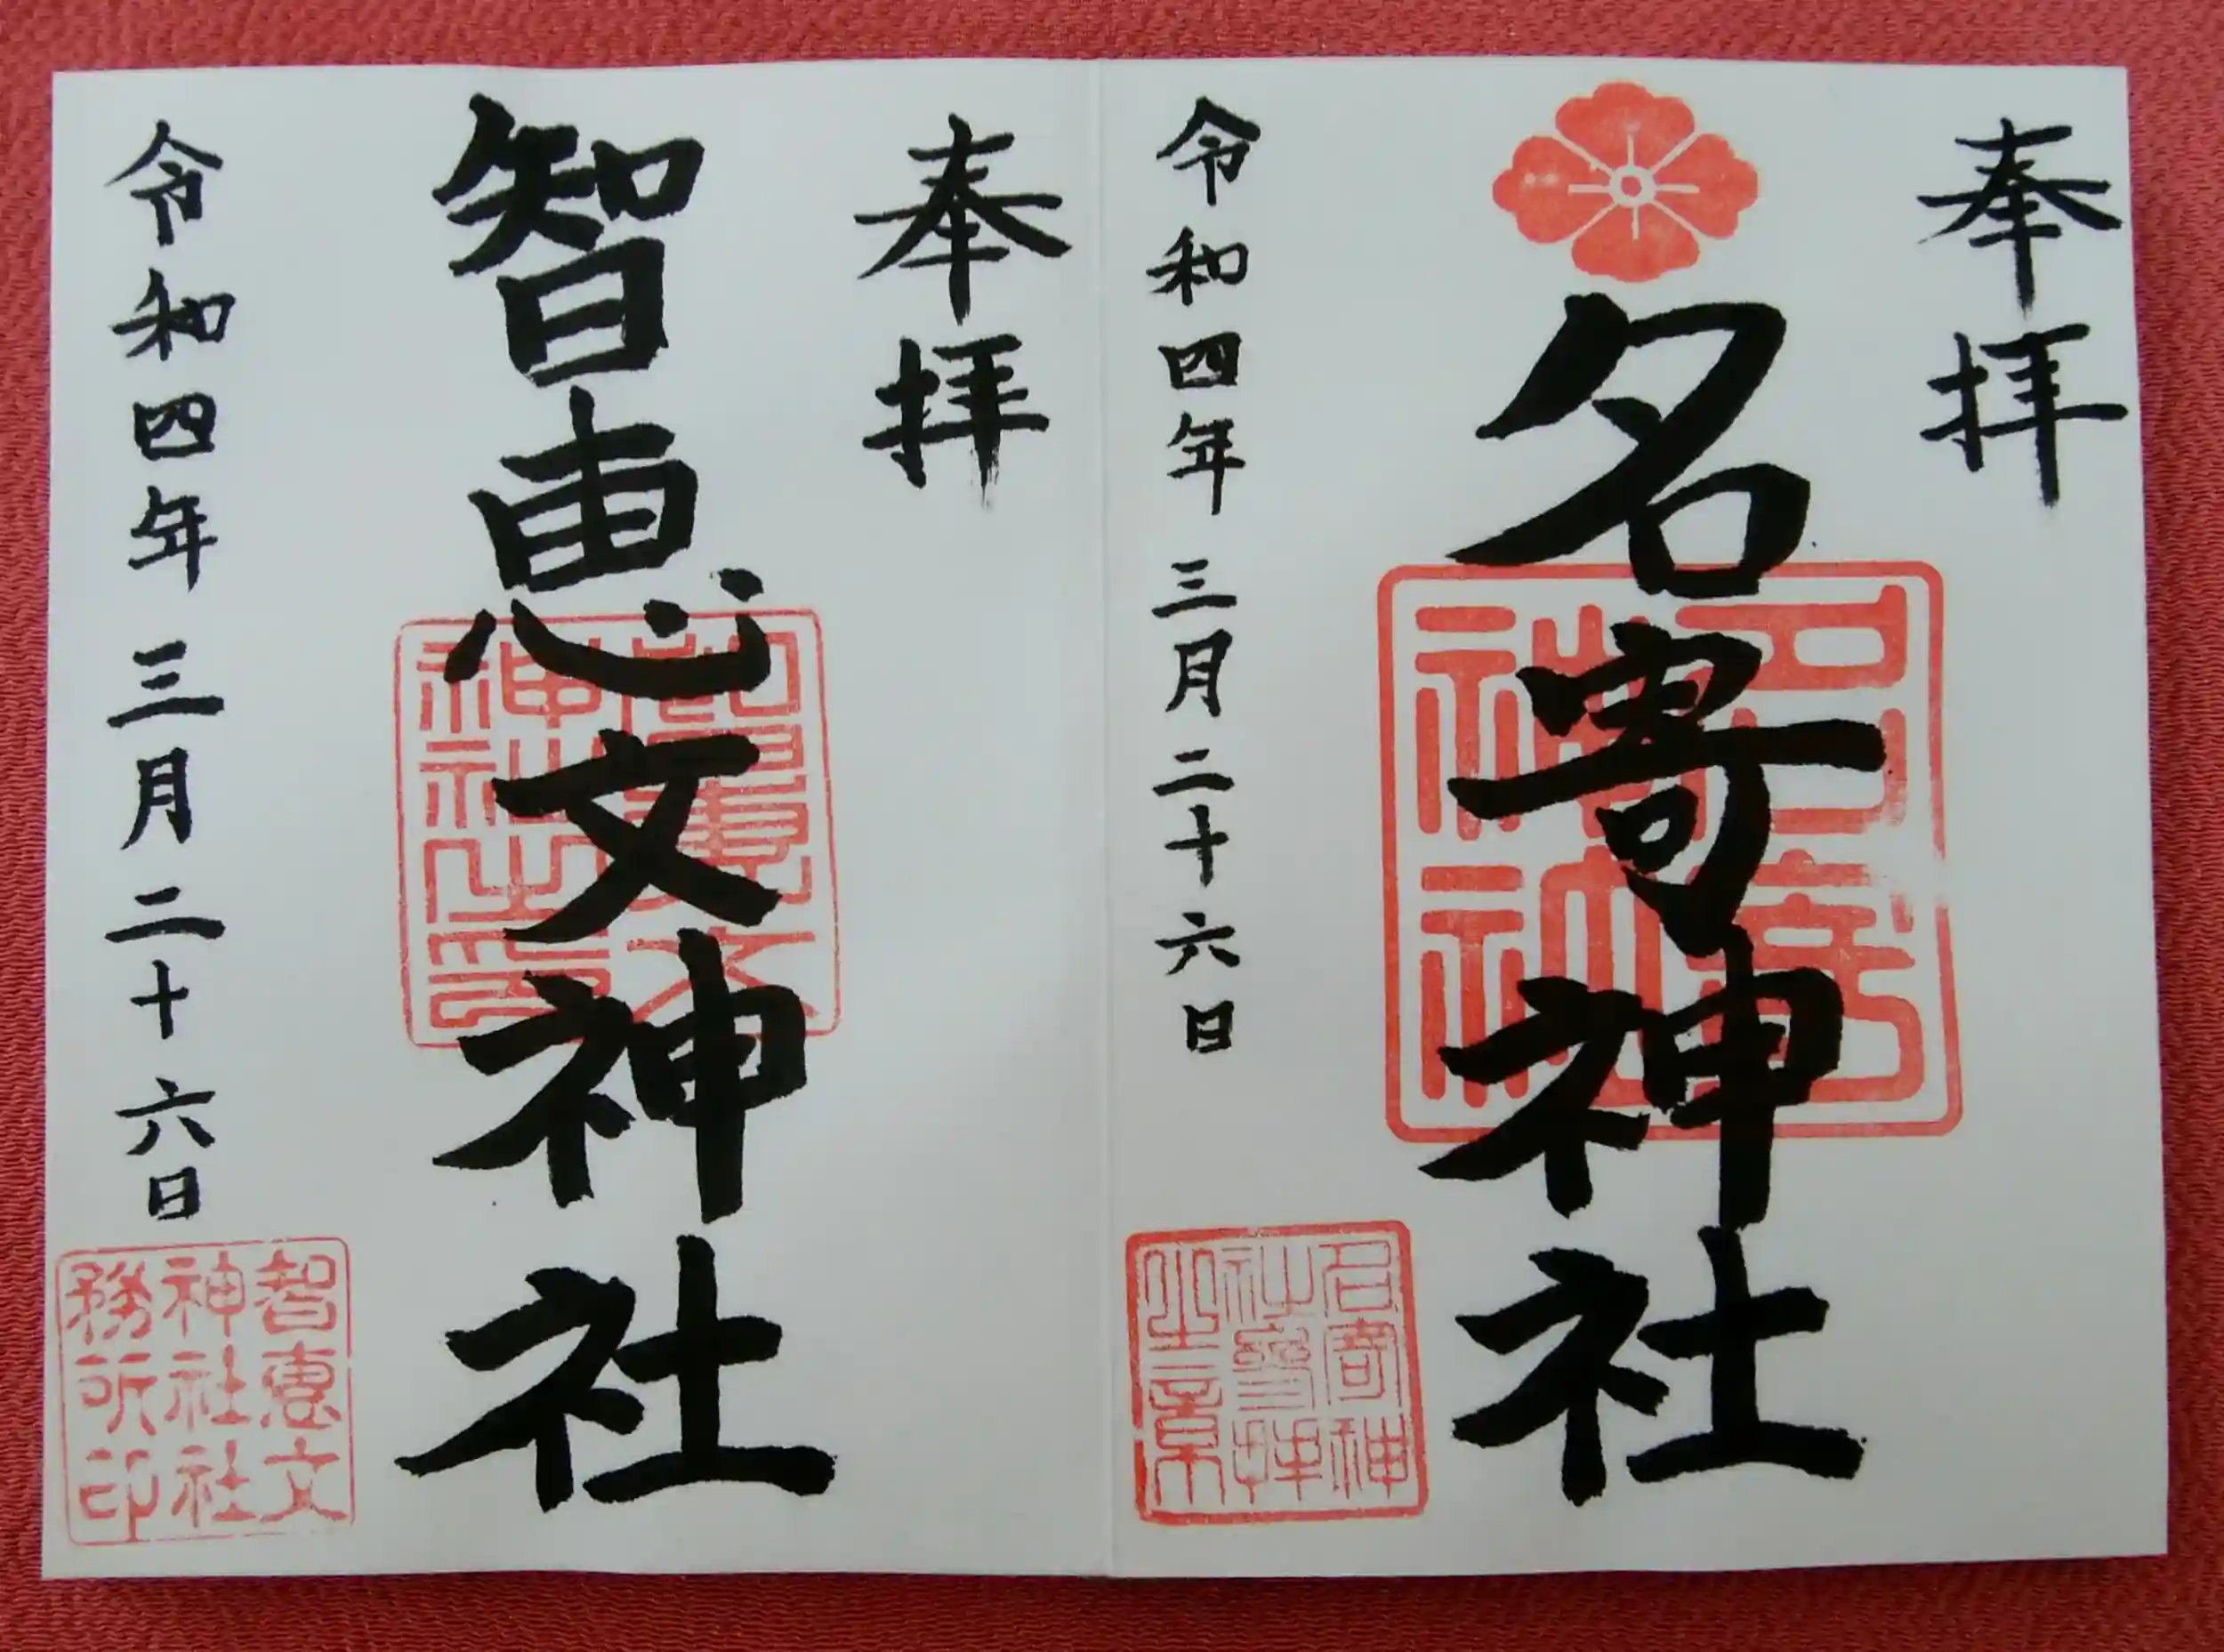 奉拝
名寄神社
名寄神社
令和四年三月二十六日
名寄神
社參拝
之章
奉拝
智恵文神社
智恵文
神社之印
令和四年三月二十六日
智恵文
神社社
務所印